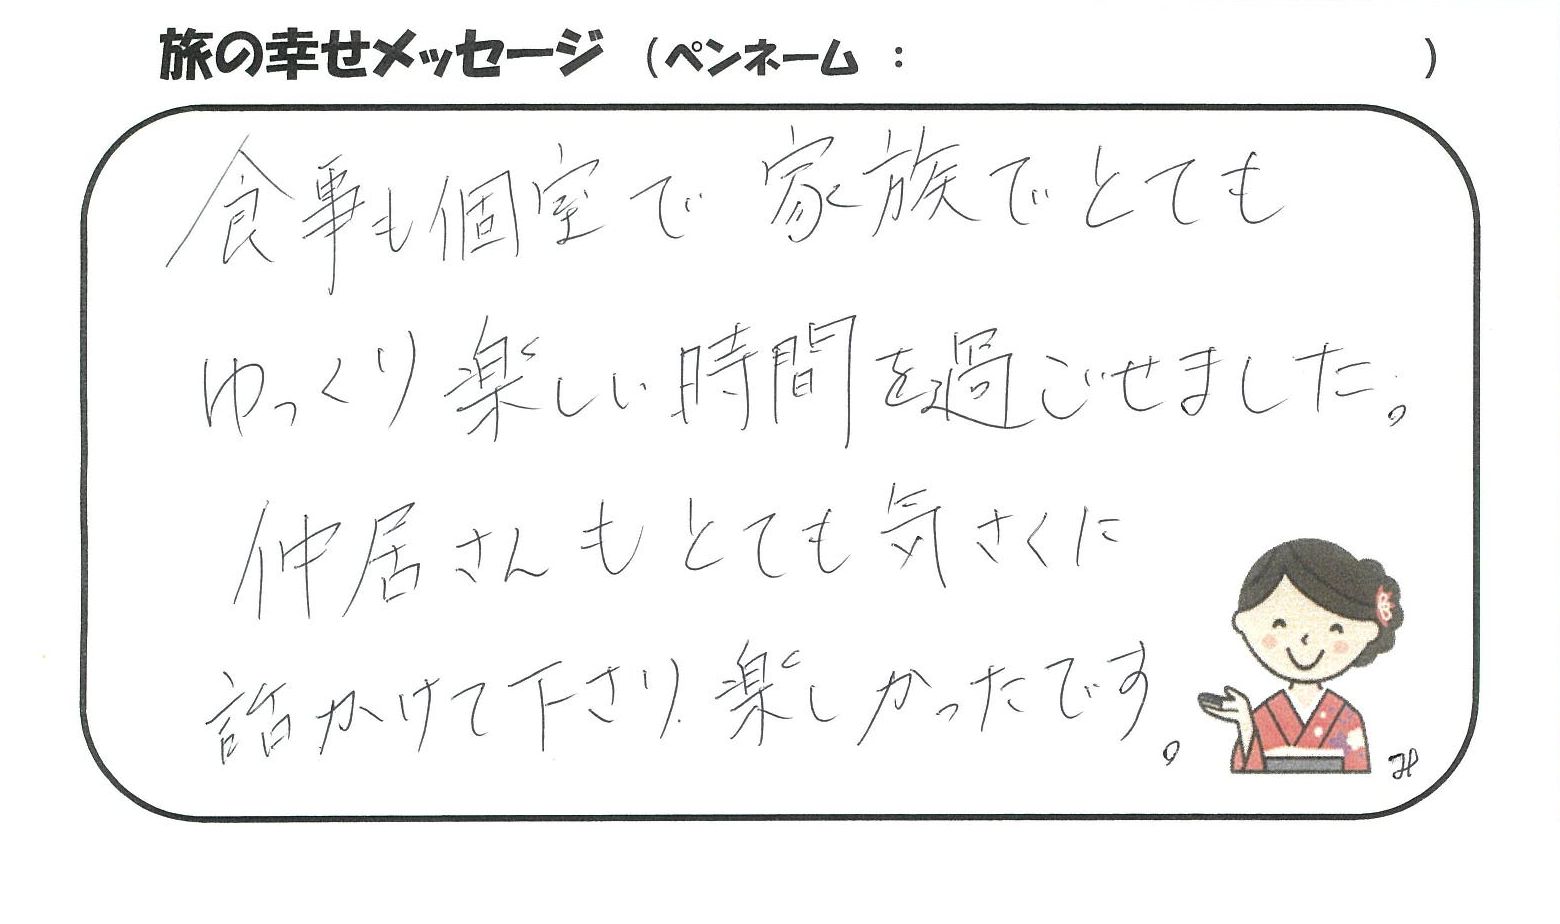 旅の幸せメッセージ (ペンネーム : )
食事も個室で 家族でとても
ゆっくり楽しい時間を過ごせました。
仲居さんもとても気さくに
話かけて下さり、楽しかったです。